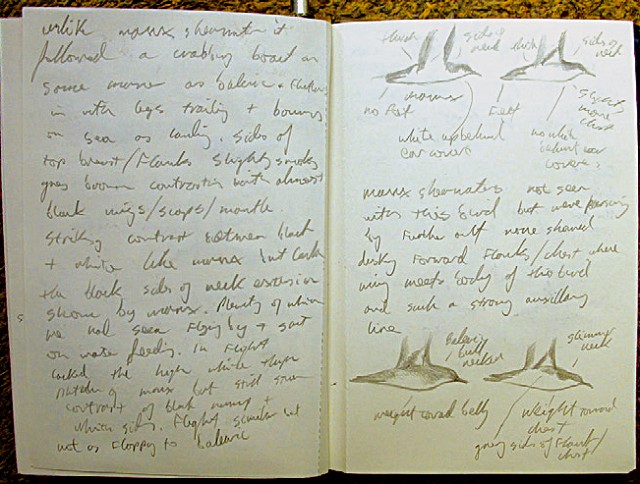 unlik manx shearwater it
followed a crabbing boat in
same manner as balearic.
in with legs trailing + bouncing
on sea as landing. Sides of
top breast/flanks slightly smoky
grey brown contrasting with almost
black wings/scaps/mantle.
Striking contrast between black
+ white like manx but lacks
the black sides of neck extension
shown by manx. Plenty of which
we had seen flying by + sat
on water feeding. In flight
lacked the high white thigh
patches of manx but still strong
contrast of black rump +
white sides. Flight similar but
not as floppy to balearic
thigh
sides of neck
thigh
sides of neck
no feet
manx
feet
white up behind
ear covert
no white
behind ear
coverts
manx shearwaters not seen
with this bird but were passing
by further out none showed
dusky forward flanks/chest where
wing meets body of this bird
and such a strong auxillary
line
Balearic
bull
necked
slimmer
neck
weight round belly
weight round
chest
grey sides of flank/
chest